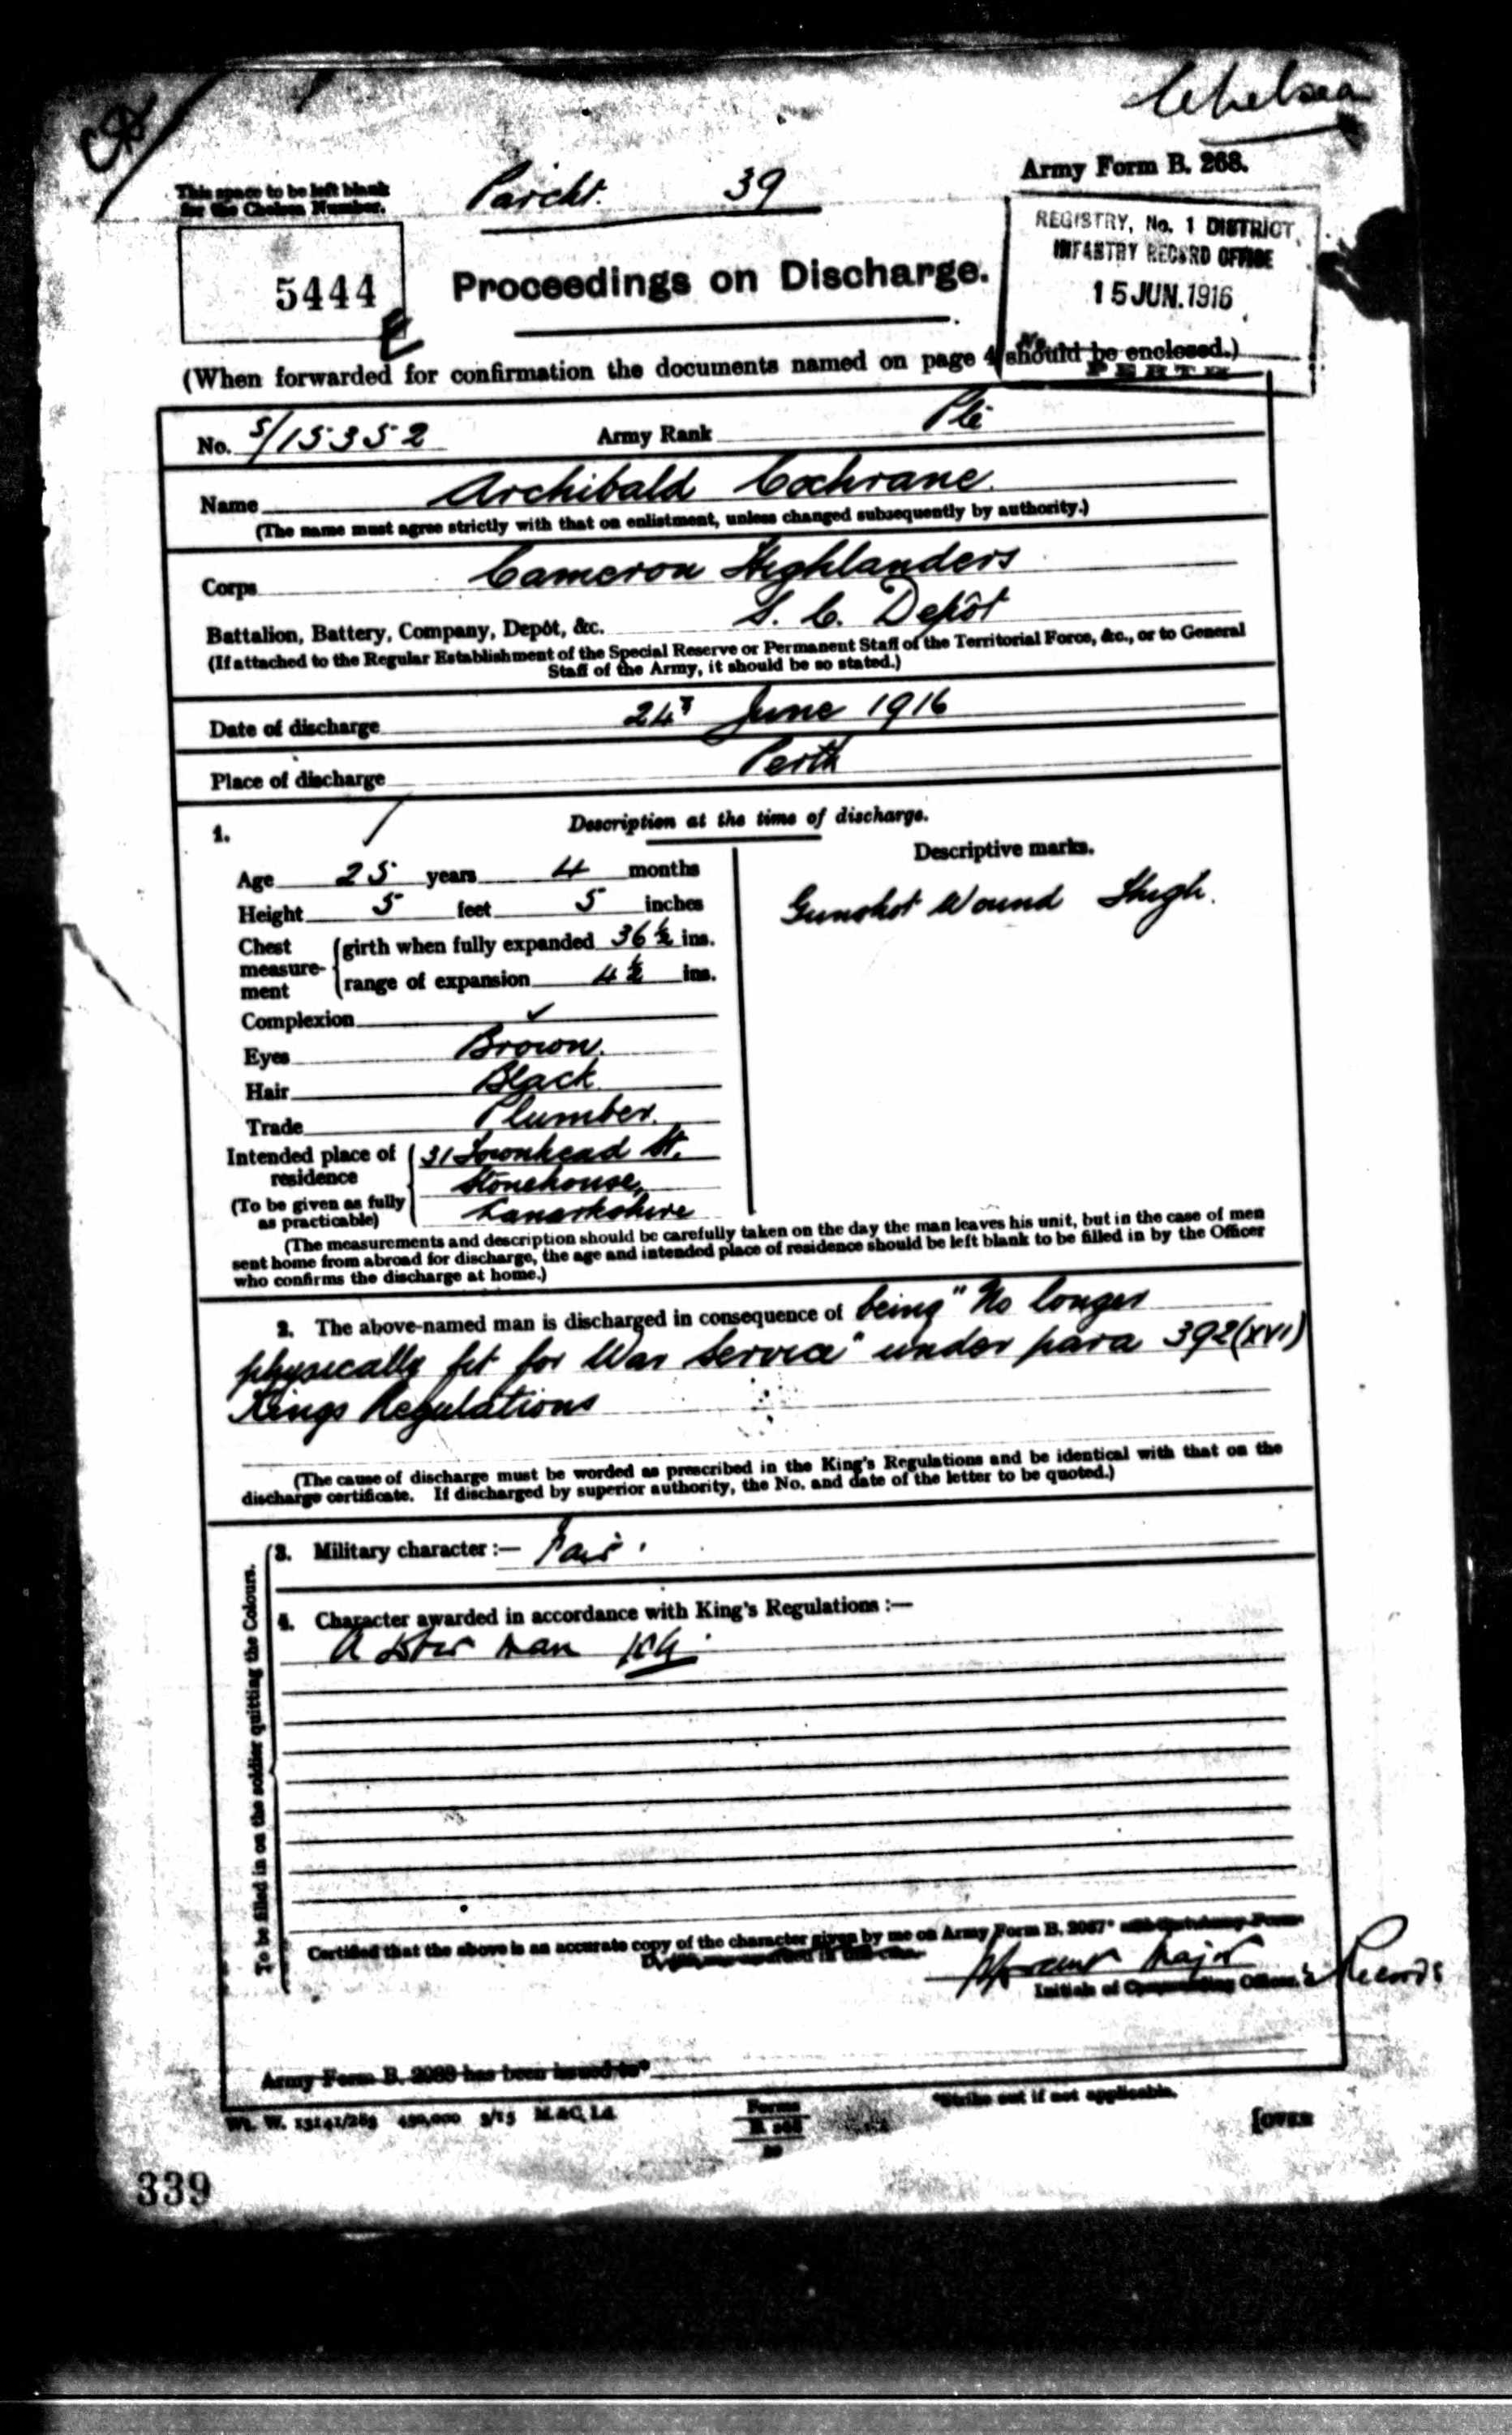 Chelsea
Army Form B. 268.
This space to be left blank
for the Chelsea Number.
Parcht. 39
REGISTRY, No. 1 DISTRICT,
INFANTRY RECORD OFFICE
15 JUN. 1916
No.
PERTH
5444
Proceedings on Discharge.
(When forwarded for confirmation the documents named on page 4 should be enclosed.)
No. S/15352 Army Rank Pte
Name Archibald Cochrane.
(The name must agree strictly with that on enlistment, unless changed subsequently by authority.)
Corps Cameron Highlanders
Battalion, Battery, Company, Depôt, &c. S. C. Depôt
(If attached to the Regular Establishment of the Special Reserve or Permanent Staff of the Territorial Force, &c., or to General
Staff of the Army, it should be so stated.)
Date of discharge 24 June 1916
Place of discharge Perth
1. Description at the time of discharge.
Age 25 years 4 months
Height 5 feet 5 inches
Chest measurement girth when fully expanded 36½ ins.
range of expansion 4½ ins.
Complexion ✓
Eyes Brown.
Hair Black
Trade Plumber.
Intended place of residence 31 Townhead St.
(To be given as fully as practicable) Stonehouse,
Lanarkshire
Descriptive marks.
Gunshot Wound Thigh.
(The measurements and description should be carefully taken on the day the man leaves his unit, but in the case of men
sent home from abroad for discharge, the age and intended place of residence should be left blank to be filled in by the Officer
who confirms the discharge at home.)
2. The above-named man is discharged in consequence of being "No longer
physically fit for War Service" under para 392(XVI)
Kings Regulations
(The cause of discharge must be worded as prescribed in the King's Regulations and be identical with that on the
discharge certificate. If discharged by superior authority, the No. and date of the letter to be quoted.)
To be filled in on the soldier quitting the Colours.
3. Military character :— Fair.
4. Character awarded in accordance with King's Regulations :—
A sober man
Certified that the above is an accurate copy of the character given by me on Army Form B. 2067* and that Army Form
Major
Initials of Commanding Officer. i/c Records
Army Form B. 2088 has been issued to*
Wt. W. 13141/283 450,000 3/15 M.&C. Ld. Forms
B 268
*Strike out if not applicable.
[OVER
339